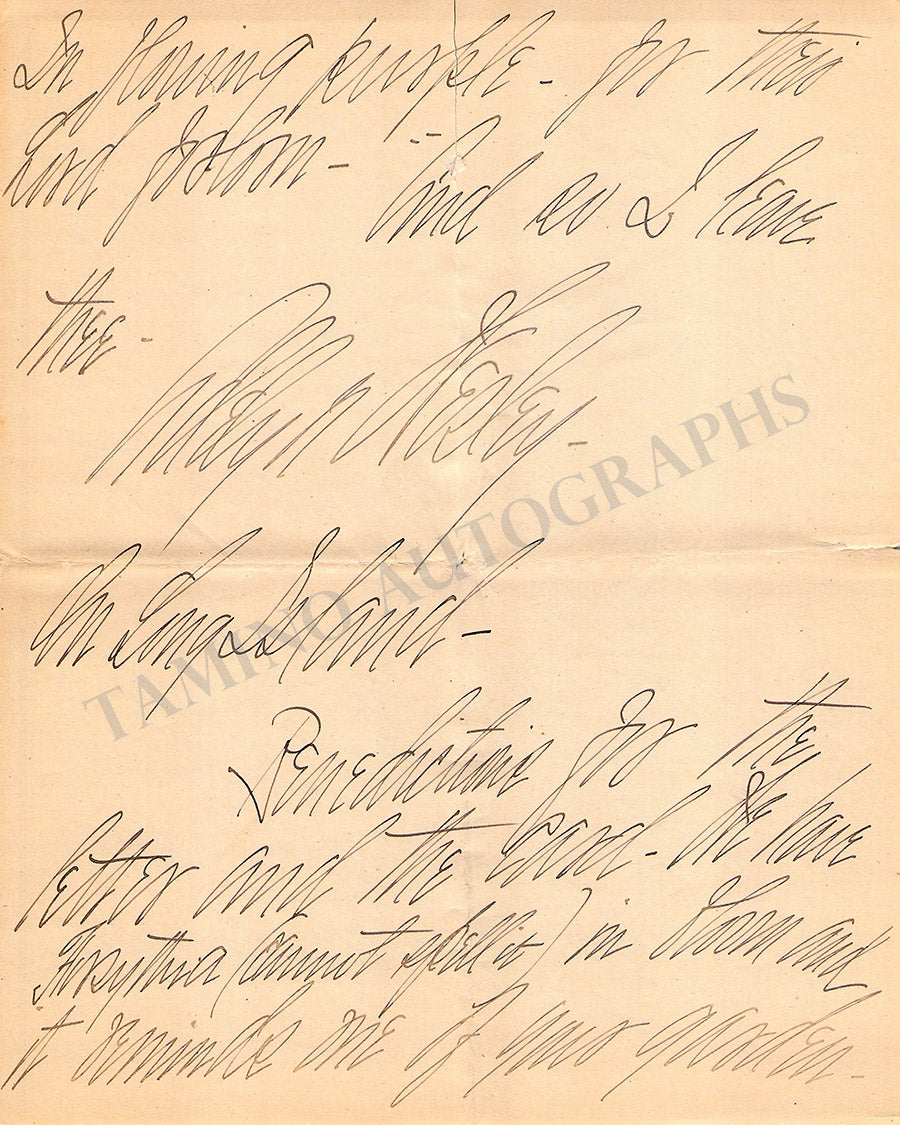 In flowing purple - for their
Lord forlorn - "And so I leave
thee -
On Long Island -
Benedictions for the
letter and the card - We have
Forsythia (cannot spell it) in bloom and
it reminds me of your garden -
TAMINO AUTOGRAPHS